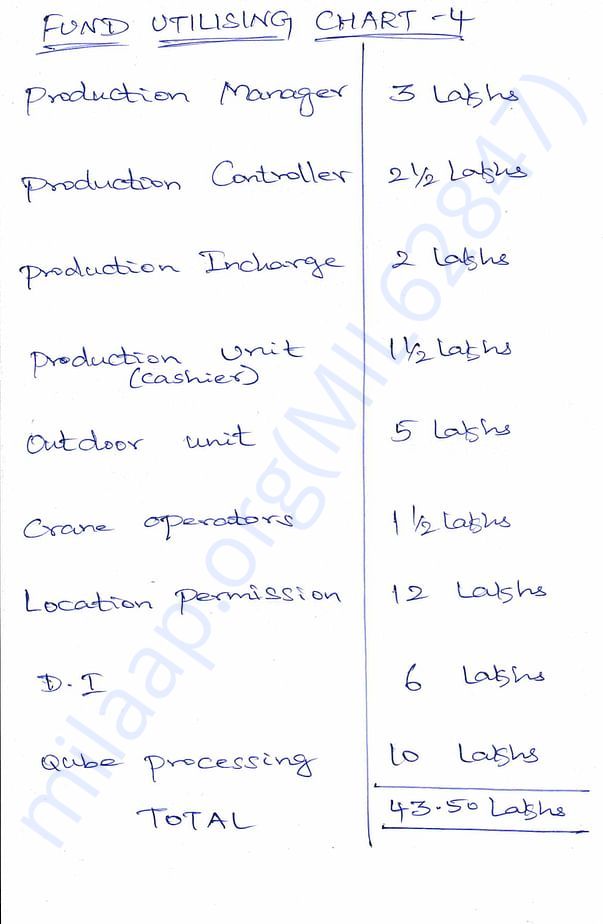 FUND UTILISING CHART -4
Production Manager 3 Lakhs
Production Controller 2 1/2 Lakhs
Production Incharge 2 Lakhs
Production Unit 1 1/2 Lakhs
(cashier)
Outdoor unit 5 Lakhs
Crane operators 1 1/2 Lakhs
Location Permission 12 Lakhs
D.I 6 Lakhs
Qube processing 10 Lakhs
TOTAL 43.50 Lakhs
milaap.org(MIL62847)